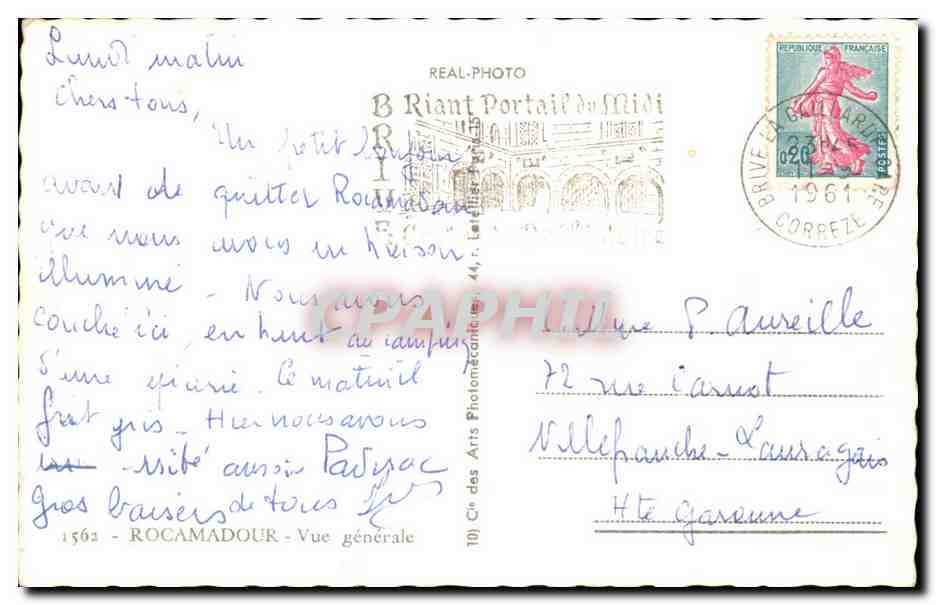 Lundi matin
Chers tous,
Un petit bonjour
avant de quitter Rocamadour
que nous avons eu
illuminé - Nous avons
couché ici, en haut au camping
d'une
fait gris - Hier nous avons
visité aussi Padirac
Gros baisers de tous
1562 - ROCAMADOUR - Vue générale
REAL-PHOTO
BRIVE
Riant Portail du Midi
10) Cie des Arts Photomécaniques, 44, r. Letellier Paris-15
CPARHII
REPUBLIQUE FRANÇAISE
0,20
POSTES
BRIVE LA GAILLARDE
1961
CORREZE
P. Aureille
72 rue Carnot
Villefranche-Lauragais
Hte Garonne